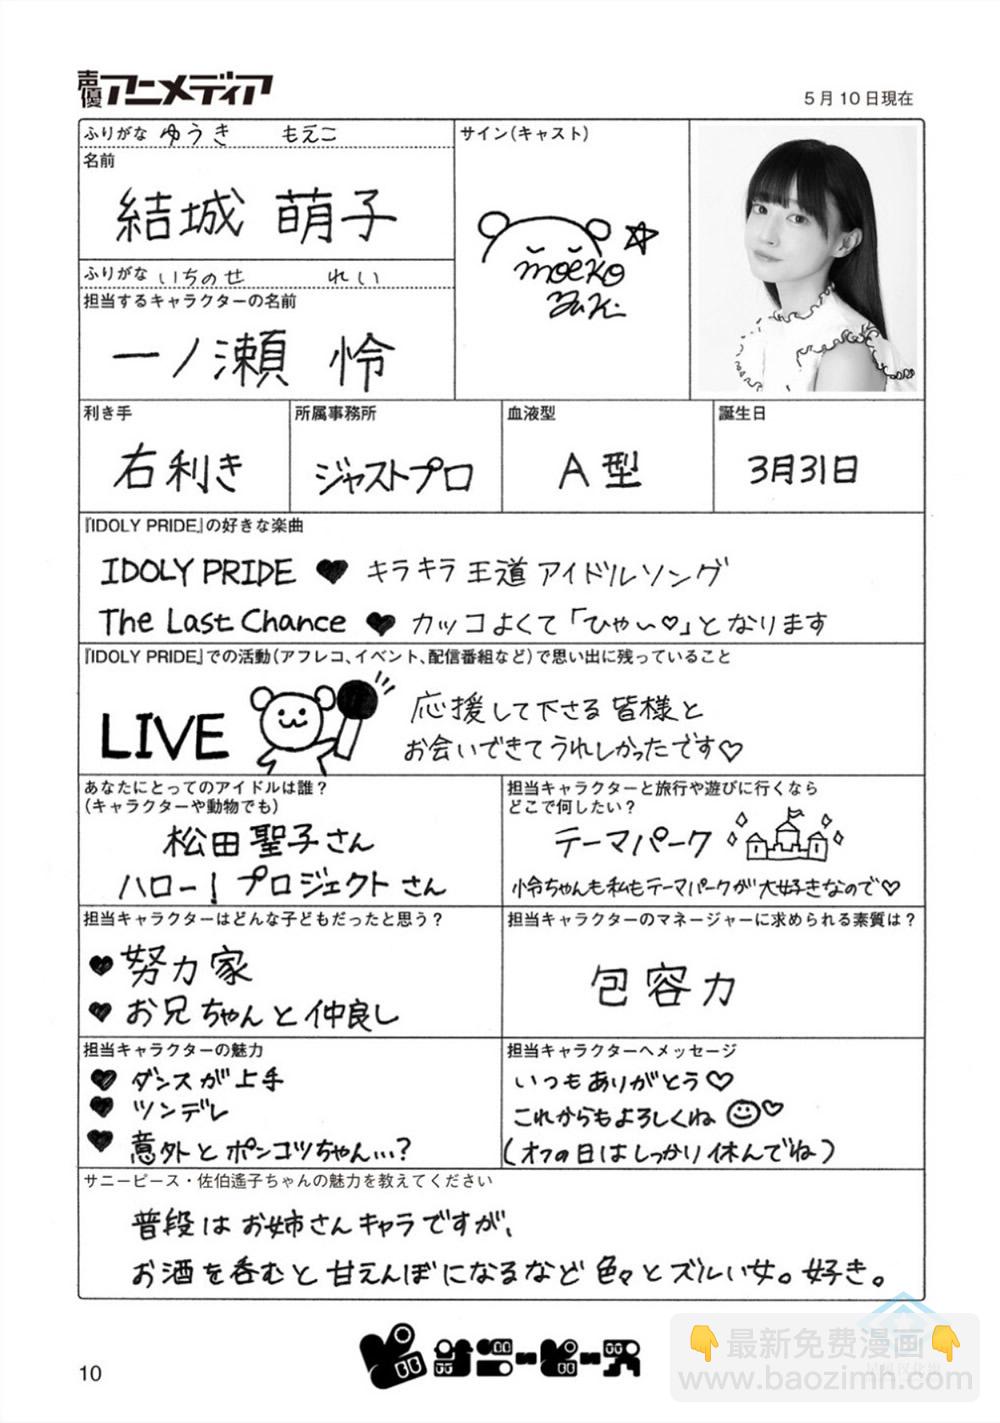 声優アニメディア
5月10日現在
ふりがな ゆうき もえこ
名前
結城 萌子
ふりがな いちのせ れい
担当するキャラクターの名前
一ノ瀬 怜
サイン(キャスト)
moeko
Yuki
利き手
右利き
所属事務所
ジャストプロ
血液型
A型
誕生日
3月31日
『IDOLY PRIDE』の好きな楽曲
IDOLY PRIDE ♥ キラキラ王道アイドルソング
The Last Chance ♥ カッコよくて「ひゃ〜♡」となります
『IDOLY PRIDE』での活動(アフレコ、イベント、配信番組など)で思い出に残っていること
LIVE
応援して下さる皆様と
お会いできてうれしかったです♡
あなたにとってのアイドルは誰?
(キャラクターや動物でも)
松田聖子さん
ハロー!プロジェクトさん
担当キャラクターと旅行や遊びに行くなら
どこで何したい?
テーマパーク
怜ちゃんも私もテーマパークが大好きなので♡
担当キャラクターはどんな子どもだったと思う?
♥努力家
♥お兄ちゃんと仲良し
担当キャラクターのマネージャーに求められる素質は?
包容力
担当キャラクターの魅力
♥ダンスが上手
♥ツンデレ
♥意外とポンコツちゃん…?
担当キャラクターへメッセージ
いつもありがとう♡
これからもよろしくね☺♡
(オフの日はしっかり休んでね)
サニーピース・佐伯遙子ちゃんの魅力を教えてください
普段はお姉さんキャラですが、
お酒を呑むと甘えんぼになるなど色々とズルい女。好き。
サニーピース
10
👇最新免费漫画👇
www.baozimh.com